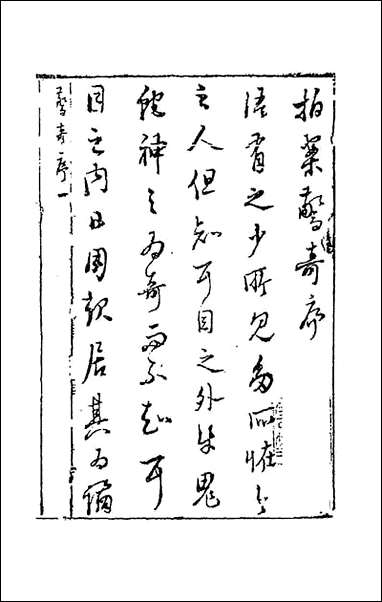 拍案驚奇序
語有之少所見多所怪今
之人但知耳目之外牛鬼
蛇神之為奇而不知耳
目之內日用起居其為譎
驚奇序一